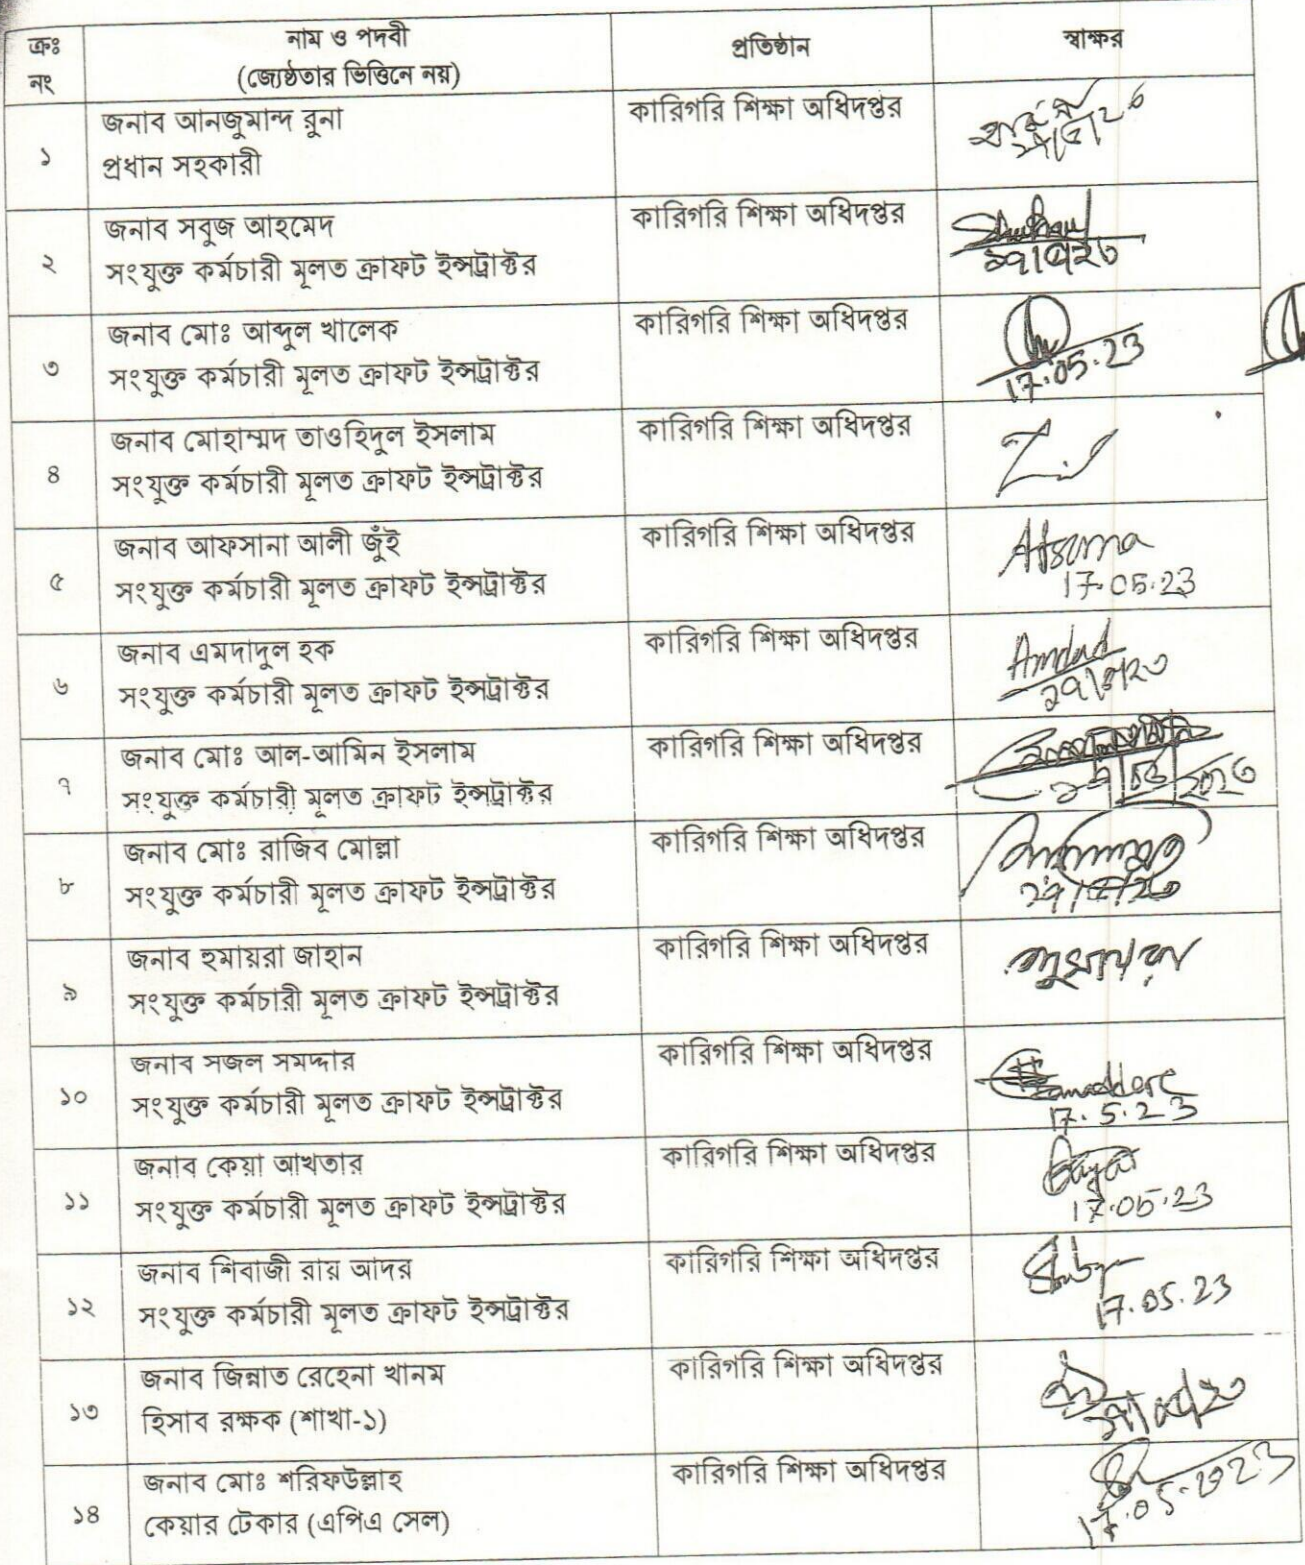 ক্রঃ নং
নাম ও পদবী
(জ্যেষ্ঠতার ভিত্তিনে নয়)
প্রতিষ্ঠান
স্বাক্ষর
১
জনাব আনজুমান্দ রুনা
প্রধান সহকারী
কারিগরি শিক্ষা অধিদপ্তর
২
জনাব সবুজ আহমেদ
সংযুক্ত কর্মচারী মূলত ক্রাফট ইন্সট্রাক্টর
কারিগরি শিক্ষা অধিদপ্তর
১৭/৫/২৩
৩
জনাব মোঃ আব্দুল খালেক
সংযুক্ত কর্মচারী মূলত ক্রাফট ইন্সট্রাক্টর
কারিগরি শিক্ষা অধিদপ্তর
17.05.23
৪
জনাব মোহাম্মদ তাওহিদুল ইসলাম
সংযুক্ত কর্মচারী মূলত ক্রাফট ইন্সট্রাক্টর
কারিগরি শিক্ষা অধিদপ্তর
৫
জনাব আফসানা আলী জুঁই
সংযুক্ত কর্মচারী মূলত ক্রাফট ইন্সট্রাক্টর
কারিগরি শিক্ষা অধিদপ্তর
Afsana
17.05.23
৬
জনাব এমদাদুল হক
সংযুক্ত কর্মচারী মূলত ক্রাফট ইন্সট্রাক্টর
কারিগরি শিক্ষা অধিদপ্তর
Amdad
১৭/৫/২৩
৭
জনাব মোঃ আল-আমিন ইসলাম
সংযুক্ত কর্মচারী মূলত ক্রাফট ইন্সট্রাক্টর
কারিগরি শিক্ষা অধিদপ্তর
৮
জনাব মোঃ রাজিব মোল্লা
সংযুক্ত কর্মচারী মূলত ক্রাফট ইন্সট্রাক্টর
কারিগরি শিক্ষা অধিদপ্তর
১৭/৫/২৩
৯
জনাব হুমায়রা জাহান
সংযুক্ত কর্মচারী মূলত ক্রাফট ইন্সট্রাক্টর
কারিগরি শিক্ষা অধিদপ্তর
১০
জনাব সজল সমদ্দার
সংযুক্ত কর্মচারী মূলত ক্রাফট ইন্সট্রাক্টর
কারিগরি শিক্ষা অধিদপ্তর
17.5.23
১১
জনাব কেয়া আখতার
সংযুক্ত কর্মচারী মূলত ক্রাফট ইন্সট্রাক্টর
কারিগরি শিক্ষা অধিদপ্তর
17.05.23
১২
জনাব শিবাজী রায় আদর
সংযুক্ত কর্মচারী মূলত ক্রাফট ইন্সট্রাক্টর
কারিগরি শিক্ষা অধিদপ্তর
17.05.23
১৩
জনাব জিন্নাত রেহেনা খানম
হিসাব রক্ষক (শাখা-১)
কারিগরি শিক্ষা অধিদপ্তর
১৪
জনাব মোঃ শরিফউল্লাহ
কেয়ার টেকার (এপিএ সেল)
কারিগরি শিক্ষা অধিদপ্তর
17.05.2023